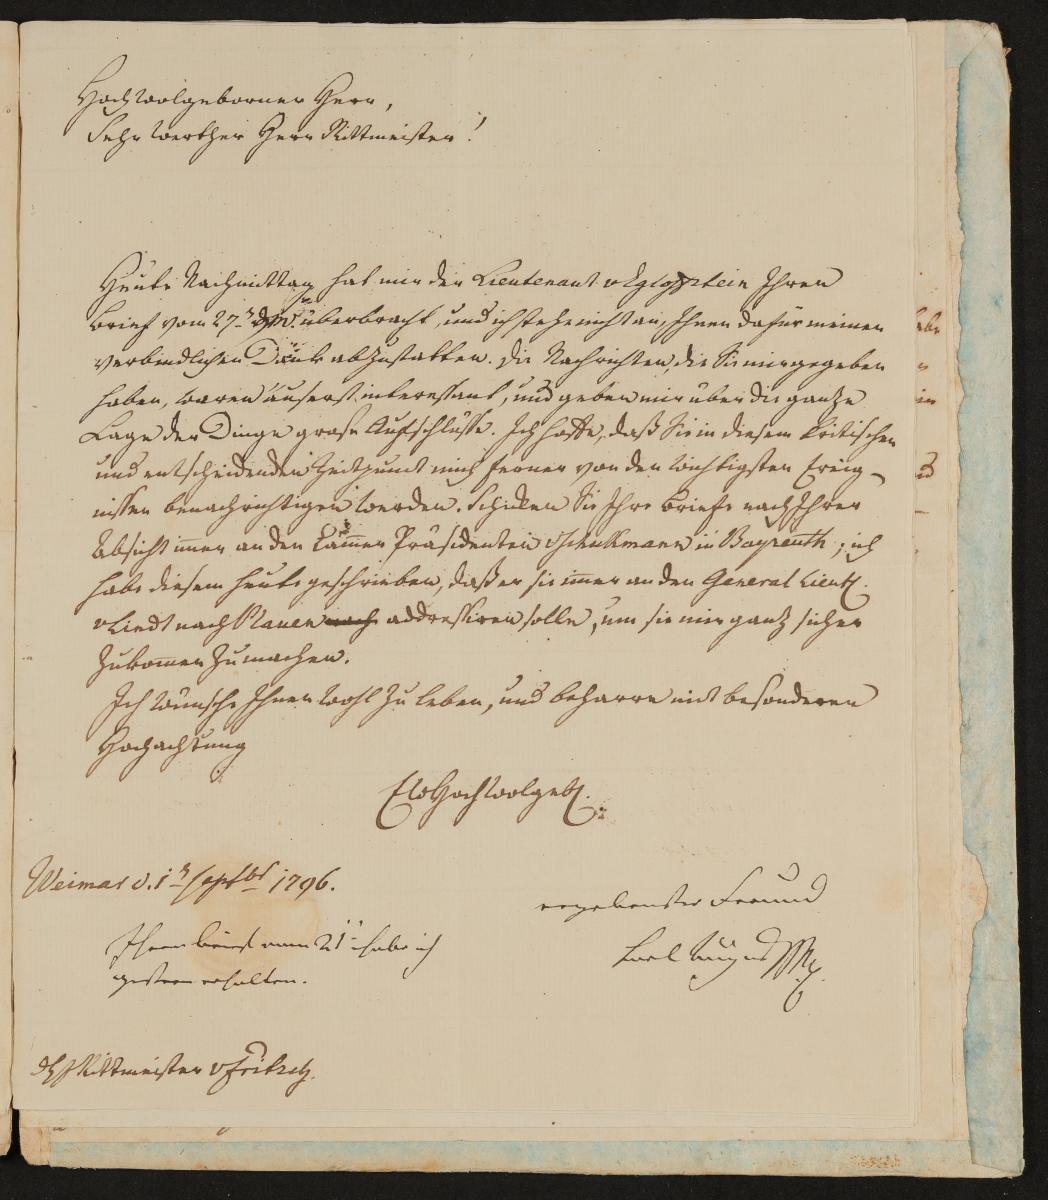 Hochwolgeborner Herr,
Sehr werther Herr Rittmeister!
Heute Nachmittag hat mir der Lieutenant v Egloffstein Ihren
Brief vom 27n. überbracht, und ich stehe nicht an, Ihnen dafür meinen
verbindlichen Dank abzustatten. Die Nachrichten, die Sie mir gegeben
haben, waren äuserst interessant, und geben mir über die ganze
Lage der Dinge grose Aufschlüsse. Ich hoffe, daß Sie in diesem kritischen
und entscheidenden Zeitpunct mich ferner von den wichtigsten Ereig-
nissen benachrichtigen werden. Schicken Sie Ihre Briefe nach Ihrer
Absicht immer an den Kammer Präsidenten vSchukmann in Bayreuth; ich
habe diesem heute geschrieben, daß er sie immer an den General Lieut.
vLindt nach Plauen nach addressiren solle, um sie mir ganz sicher
zukommen zu machen.
Ich wünsche Ihnen wohl zu leben, und beharre mit besonderen
Hochachtung
Ew Hochwolgeb.
Weimar d. 1n Septbr 1796.
ergebenster Freund
Ihren brief vom 21t habe ich
Carl August
gestern erhalten.
Rittmeister vFritsch.